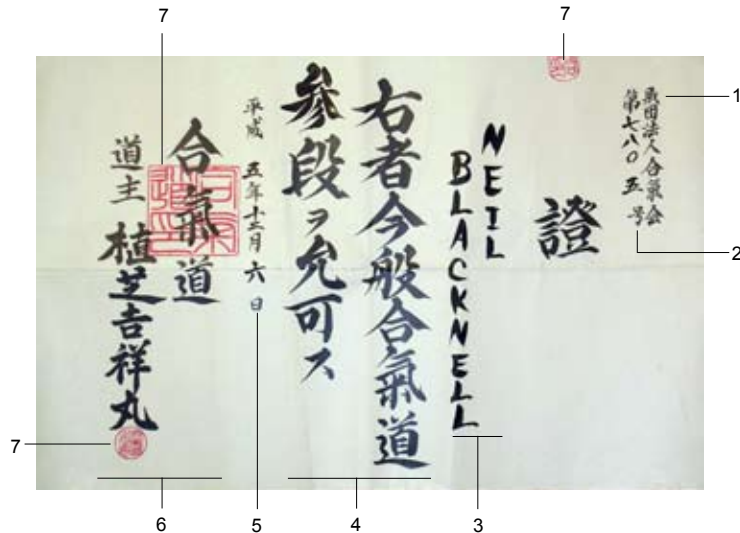 7
7
1
財団法人合氣会
第七八〇五号
2
證
NEIL
BLACKNELL
右者今般合氣道
參段ヲ允可ス
平成五年十二月六日
合氣道
道主 植芝吉祥丸
7
6
5
4
3